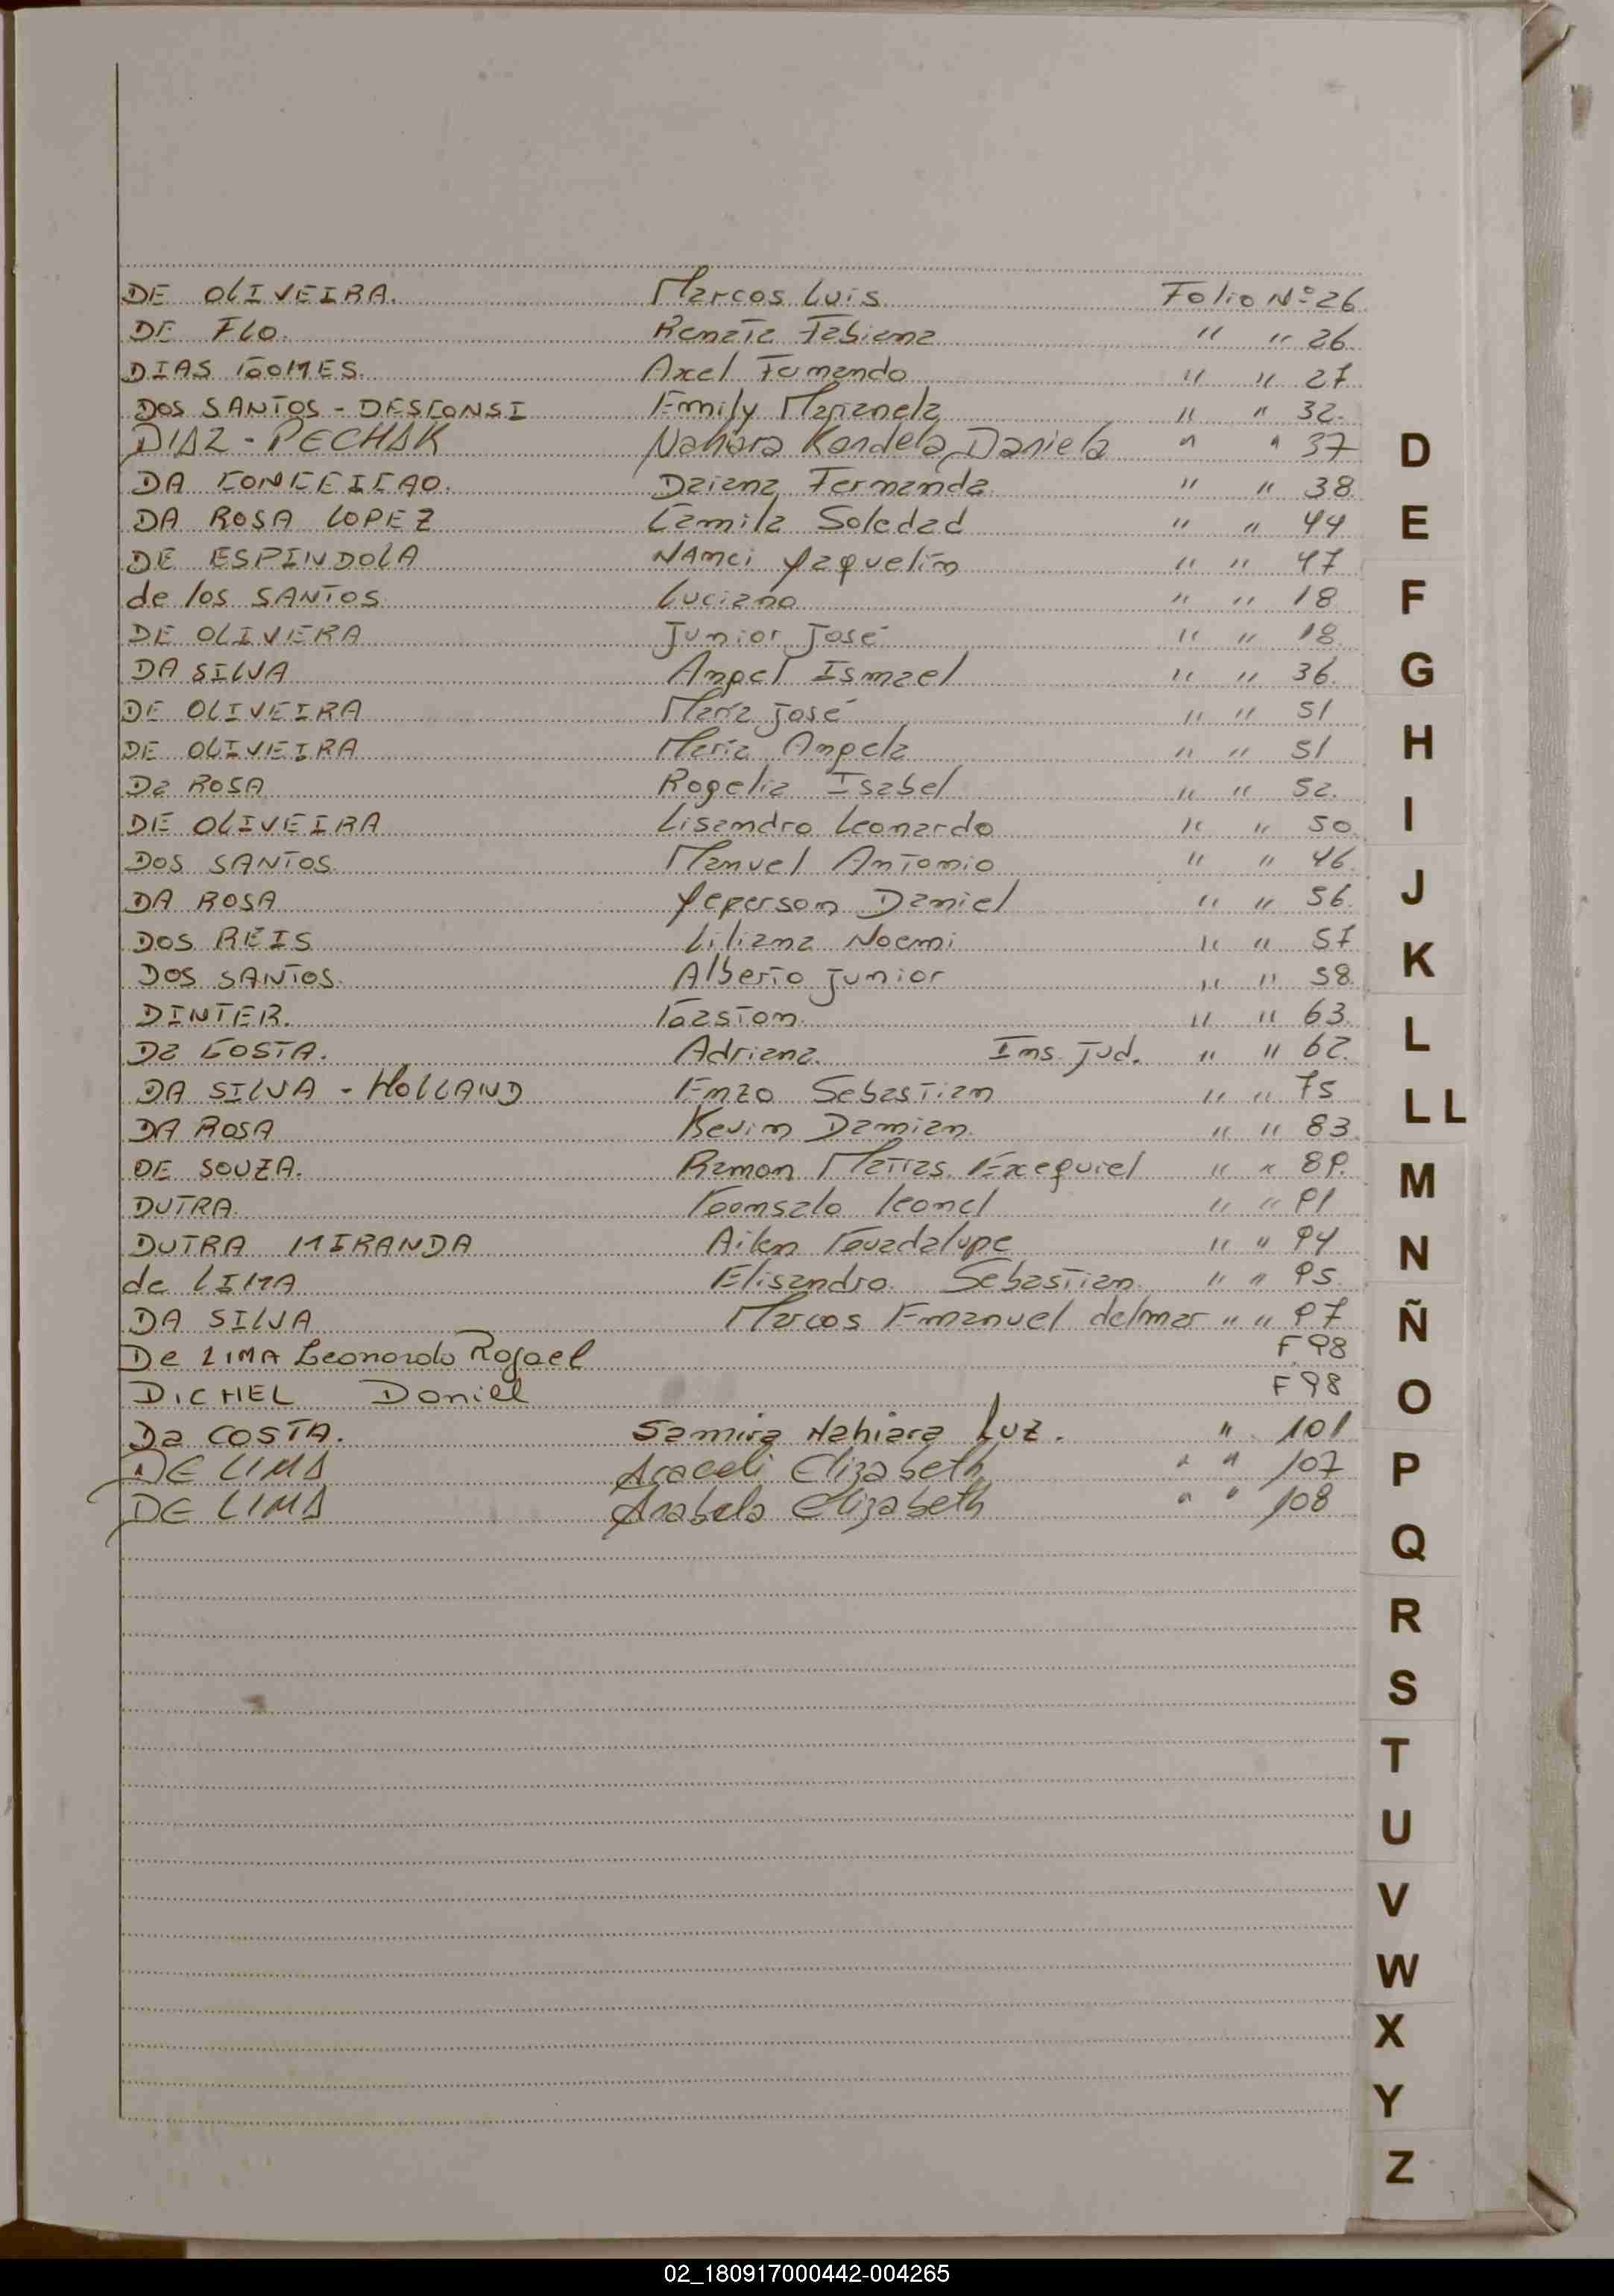 DE OLIVEIRA. Marcos Luis Folio Nº 26
DE FLO. Renata Fabiana " " 26
DIAS GOMES. Axel Fernando " " 27
DOS SANTOS - DESCONSI Emily Marianela " " 32.
DIAZ - PECHAK Nahiara Kandela Daniela " " 37
DA CONCEICAO. Daiana Fernanda " " 38
DA ROSA LOPEZ Camila Soledad " " 44
DE ESPINDOLA NAnci Yaquelin " " 47
de los SANTOS Luciano " " 18
DE OLIVERA Junior José " " 18.
DA SILVA Angel Ismael " " 36.
DE OLIVEIRA María José " " 51
DE OLIVEIRA María Angela " " 51
Da ROSA Rogelia Isabel " " 52.
DE OLIVEIRA Lisandro Leonardo " " 50
DOS SANTOS. Manuel Antonio " " 46.
DA ROSA Yeferson Daniel " " 56.
DOS REIS Liliana Noemi " " 57
DOS SANTOS. Alberto Junior " " 58.
DINTER. Gaston. " " 63.
Da COSTA. Adriana. Ins. Jud. " " 62.
DA SILVA - HOLLAND Enzo Sebastian " " 75
DA ROSA Kevin Damian. " " 83.
DE SOUZA. Ramon Matias Exequiel " " 89.
DUTRA. Gonzalo Leonel " " 91
DUTRA MIRANDA Ailen Guadalupe " " 94
de LIMA Elisandro Sebastian " " 95
DA SILVA Marcos Emanuel delmar " " 97
De LIMA Leonardo Rafael F 98
DICHEL Daniel F 98
Da COSTA. Samira Nahiara Luz. " 101
DE LIMA Araceli Elizabeth " " 107
DE LIMA Anabela Elizabeth " " 108
D
E
F
G
H
I
J
K
L
LL
M
N
Ñ
O
P
Q
R
S
T
U
V
W
X
Y
Z
02_180917000442-004265